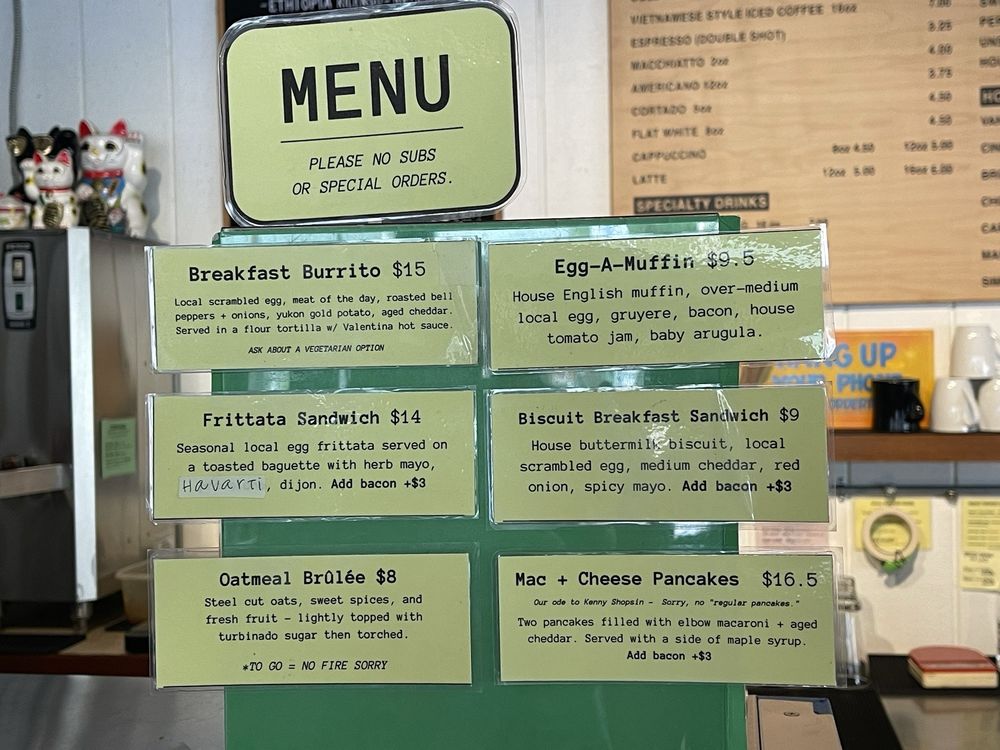 MENU
PLEASE NO SUBS
OR SPECIAL ORDERS.
Breakfast Burrito $15
Local scrambled egg, meat of the day, roasted bell
peppers + onions, yukon gold potato, aged cheddar.
Served in a flour tortilla w/ Valentina hot sauce.
ASK ABOUT A VEGETARIAN OPTION
Egg-A-Muffin $9.5
House English muffin, over-medium
local egg, gruyere, bacon, house
tomato jam, baby arugula.
Frittata Sandwich $14
Seasonal local egg frittata served on
a toasted baguette with herb mayo,
Havarti, dijon. Add bacon +$3
Biscuit Breakfast Sandwich $9
House buttermilk biscuit, local
scrambled egg, medium cheddar, red
onion, spicy mayo. Add bacon +$3
Oatmeal Brûlée $8
Steel cut oats, sweet spices, and
fresh fruit - lightly topped with
turbinado sugar then torched.
*TO GO = NO FIRE SORRY
Mac + Cheese Pancakes $16.5
Our ode to Kenny Shopsin - Sorry, no "regular pancakes."
Two pancakes filled with elbow macaroni + aged
cheddar. Served with a side of maple syrup.
Add bacon +$3
VIETNAMESE STYLE ICED COFFEE 16oz
ESPRESSO (DOUBLE SHOT) 3.25
MACCHIATTO 2oz
AMERICANO 12oz 3.75
CORTADO 4.50
FLAT WHITE 8oz 4.50
CAPPUCCINO 8oz 4.50 12oz 5.00
LATTE 12oz 5.00 16oz 6.00
SPECIALTY DRINKS
UP
PHONE